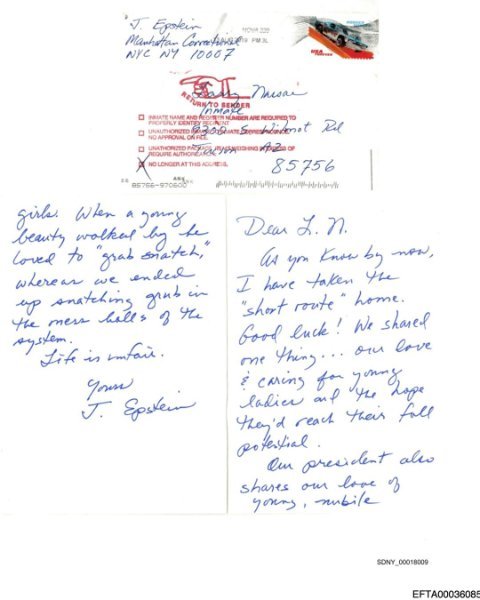 J. Epstein
Manhattan Correctional
NYC NY 10007
PM 3L
USA
FOREVER
RETURN TO SENDER
Larry Nassar
Inmate
9300 S. Wilmot Rd
Tucson AZ
85756
INMATE NAME AND REGISTER NUMBER ARE REQUIRED TO
PROPERLY IDENTIFY RECIPIENT
UNAUTHORIZED
NO APPROVAL ON FILE.
UNAUTHORIZED
REQUIRE AUTHOR
NO LONGER AT THIS ADDRESS.
85756-970600
Dear L. N.
As you know by now,
I have taken the
"short route" home.
Good luck! We shared
one thing... our love
& caring for young
ladies and the hope
they'd reach their full
potential.
Our president also
shares our love of
young, nubile
girls. When a young
beauty walked by he
loved to "grab snatch,"
whereas we ended
up snatching grub in
the mess halls of the
system.
Life is unfair.
Yours
J. Epstein
SDNY_00018009
EFTA00036085